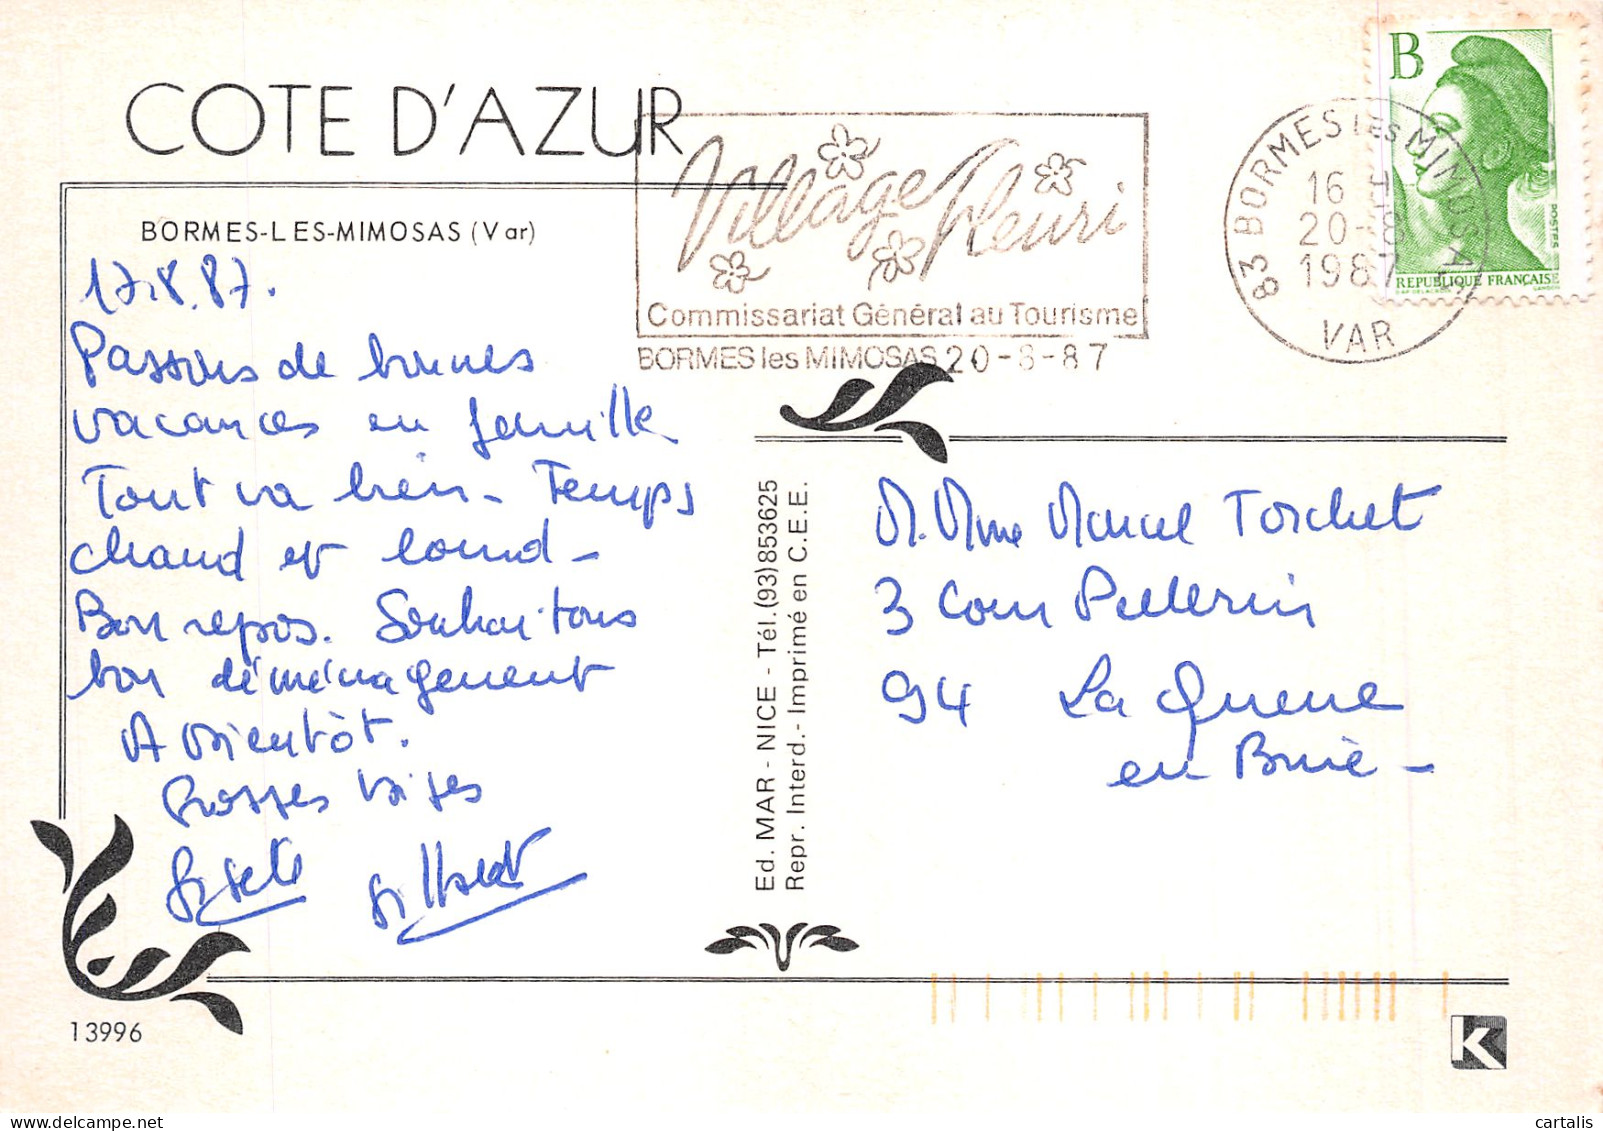 COTE D'AZUR
BORMES-LES-MIMOSAS (Var)
17.8.87.
Passons de bonnes
vacances en famille
Tout va bien - Temps
chaud et lourd -
Bon repos. Souhaitons
bon déménagement
A bientôt.
Grosses bises
Gisele Gilbert
13996
Village Fleuri
Commissariat Général au Tourisme
BORMES les MIMOSAS 20-8-87
83 BORMES LES MIMOSAS
16 H
20-8
1987
VAR
B
POSTES
REPUBLIQUE FRANÇAISE
Ed. MAR - NICE - Tél.(93)853625
Repr. Interd.- Imprimé en C.E.E.
M. Mme Marcel Torchet
3 Cour Pellerin
94 La Queue
en Brie -
K
cartalis